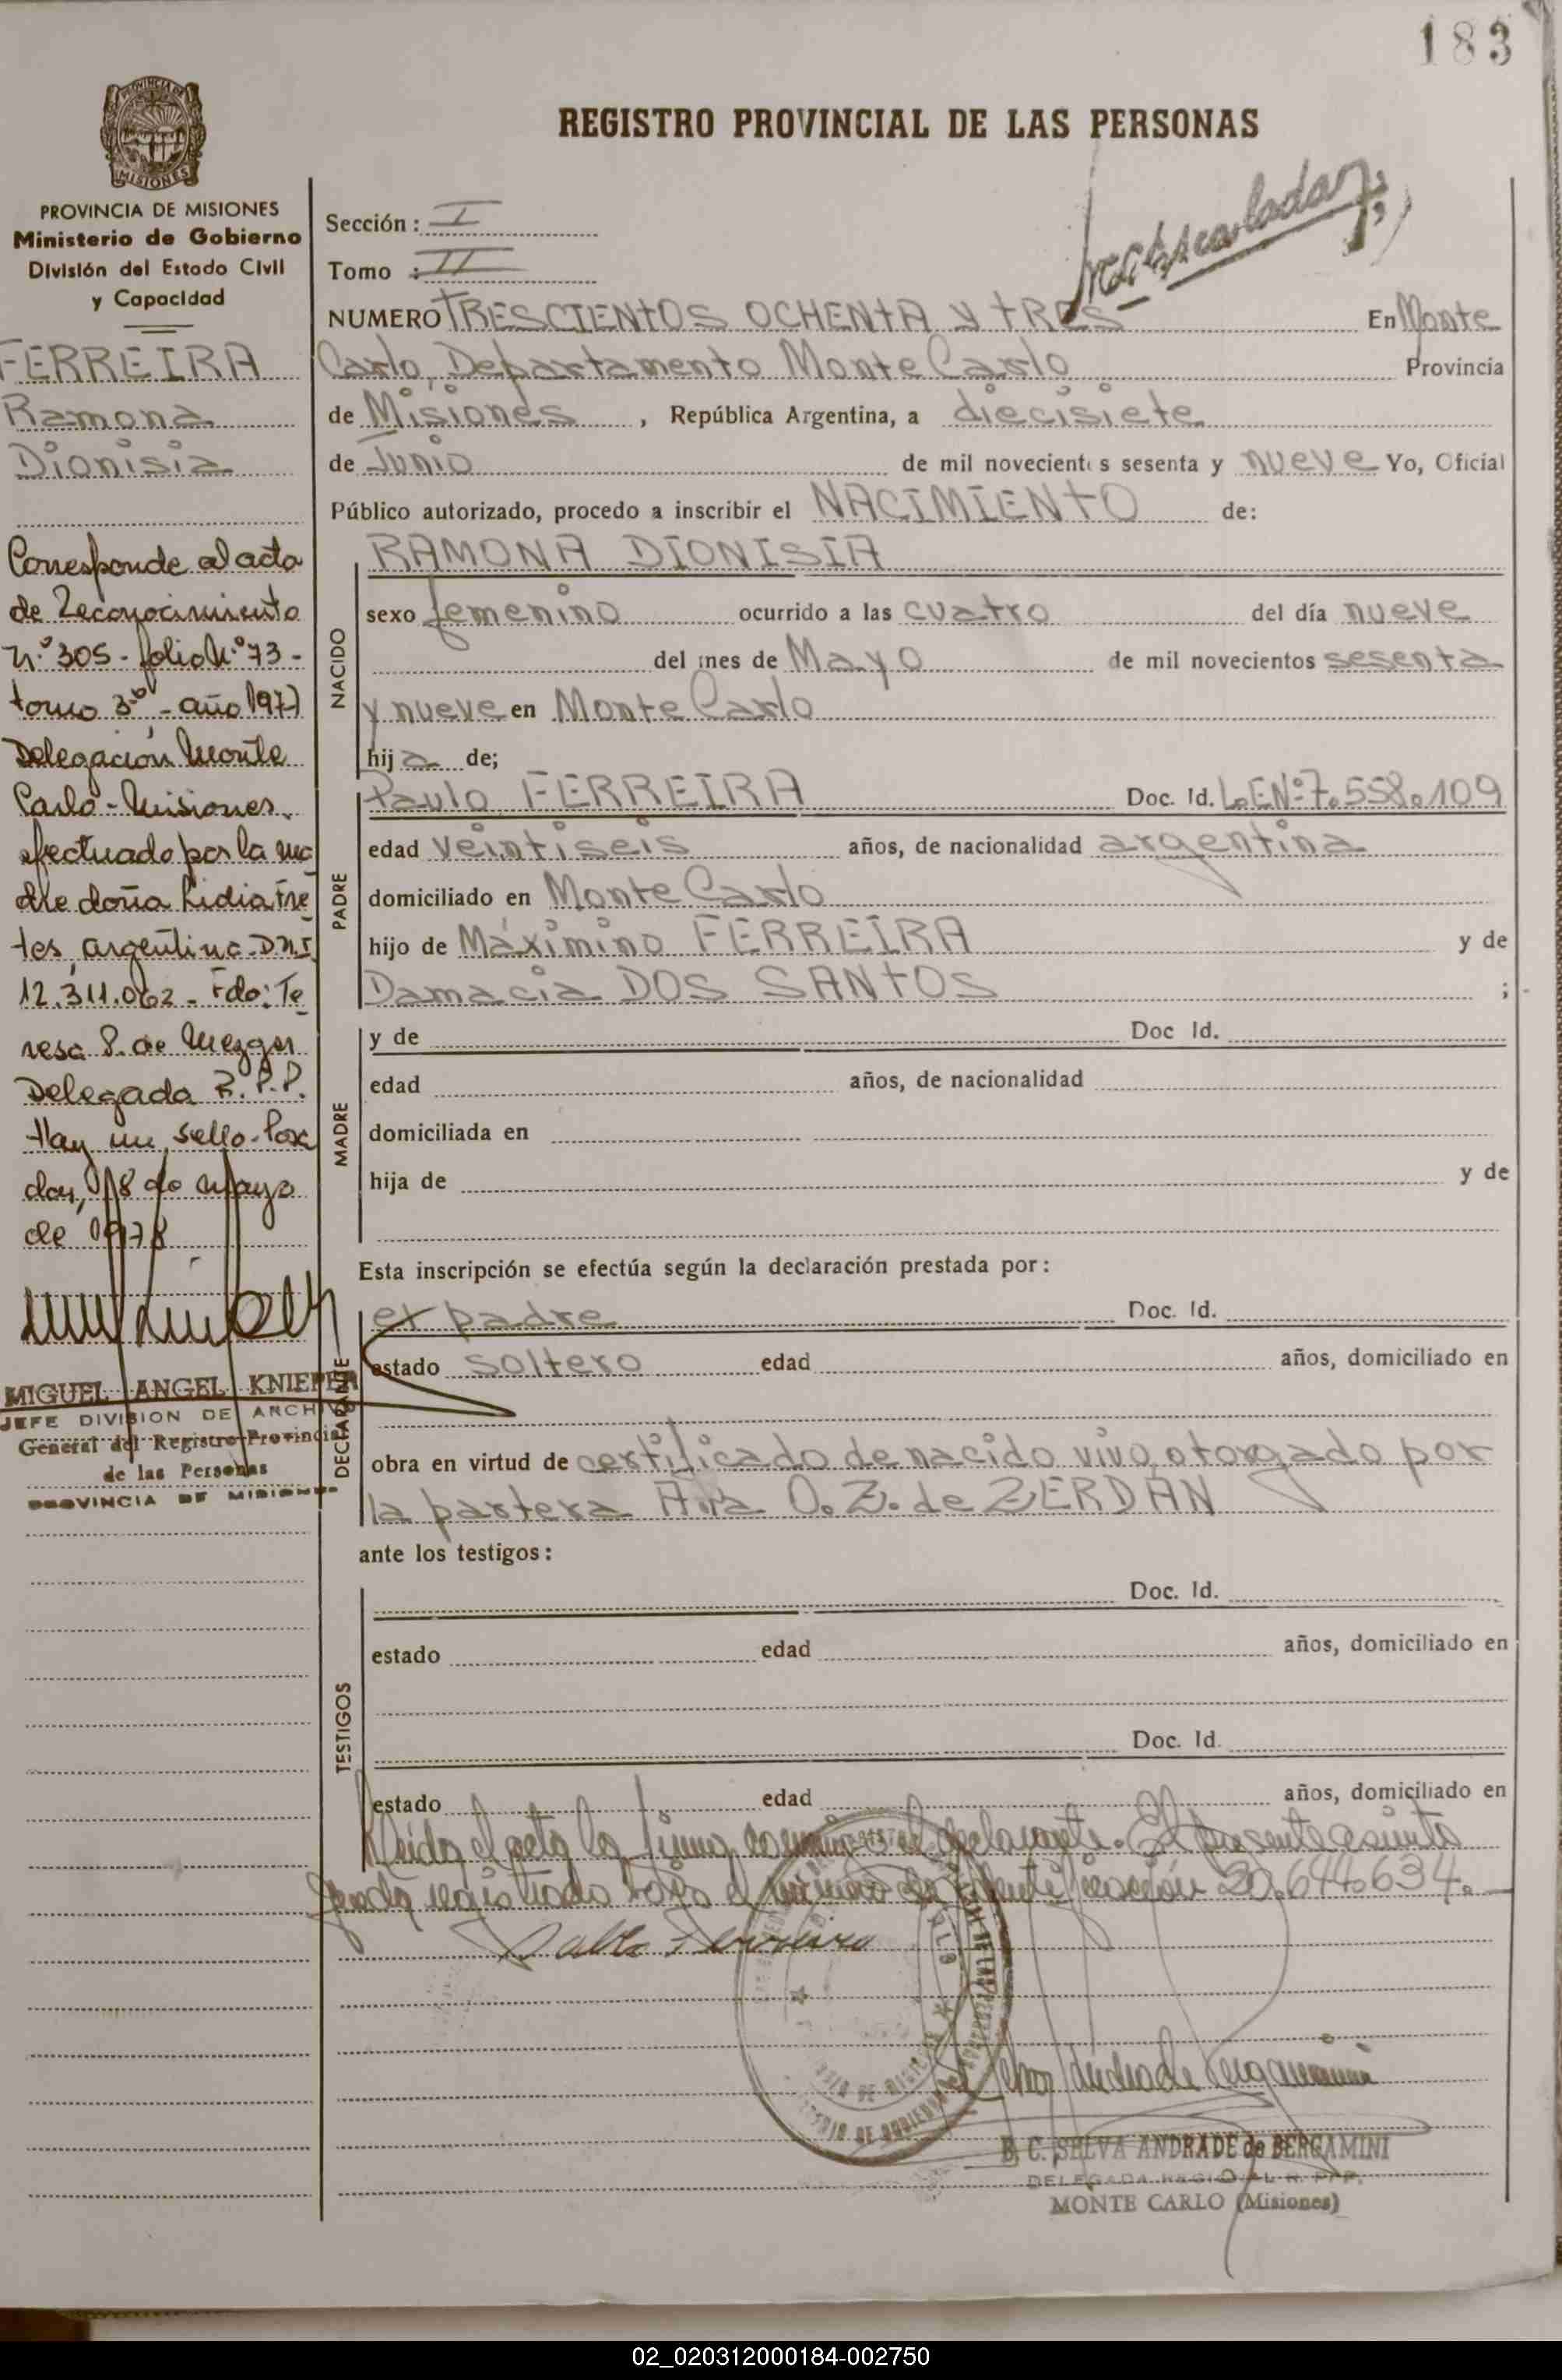 183
REGISTRO PROVINCIAL DE LAS PERSONAS
PROVINCIA DE MISIONES
PROVINCIA DE MISIONES
Ministerio de Gobierno
División del Estado Civil
y Capacidad
FERREIRA
Ramona
Dionisia
Corresponde al acta
de Reconocimiento
N.º 305 - folio Nº 73 -
tomo 3º - año 1977
Delegación Monte
Carlo - Misiones.
efectuado por la ma
dre doña Lidia Fre
tes, argentina. D.N.I.
12.311.062 - Fdo: Te
resa P. de Mezger
Delegada R.P.P.
Hay un sello. Posa
das, 18 de Mayo
de 1978
MIGUEL ANGEL KNIEPER
JEFE DIVISION DE ARCHIVO
General del Registro Provincial
de las Personas
PROVINCIA DE MISIONES
Sección: I
Tomo : II
NUMERO TRESCIENTOS OCHENTA y TRES En Monte
Carlo, Departamento Monte Carlo Provincia
de Misiones, República Argentina, a diecisiete
de Junio de mil novecientos sesenta y nueve Yo, Oficial
Público autorizado, procedo a inscribir el NACIMIENTO de:
NACIDO
RAMONA DIONISIA
sexo femenino ocurrido a las cuatro del día nueve
del mes de Mayo de mil novecientos sesenta
y nueve en Monte Carlo
hija de;
PADRE
Paulo FERREIRA Doc. Id. L.E.Nº 7.558.109
edad veintiseis años, de nacionalidad argentina
domiciliado en Monte Carlo
hijo de Máximino FERREIRA y de
Damacia DOS SANTOS ;
MADRE
y de Doc Id.
edad años, de nacionalidad
domiciliada en
hija de y de
Esta inscripción se efectúa según la declaración prestada por:
DECLARANTE
el padre Doc. Id.
estado soltero edad años, domiciliado en
obra en virtud de certificado de nacido vivo otorgado por
la partera Ana O. Z. de ZERDÁN
ante los testigos:
TESTIGOS
Doc. Id.
estado edad años, domiciliado en
Doc. Id.
estado edad años, domiciliado en
Leída el acta la firma conmigo el declarante. El presente asiento
queda registrado bajo el número de identificación 20.644.634.
Pablo Ferreira
B. C. SELVA ANDRADE de BERGAMINI
DELEGADA REGIONAL R. PP.
MONTE CARLO (Misiones)
02_020312000184-002750